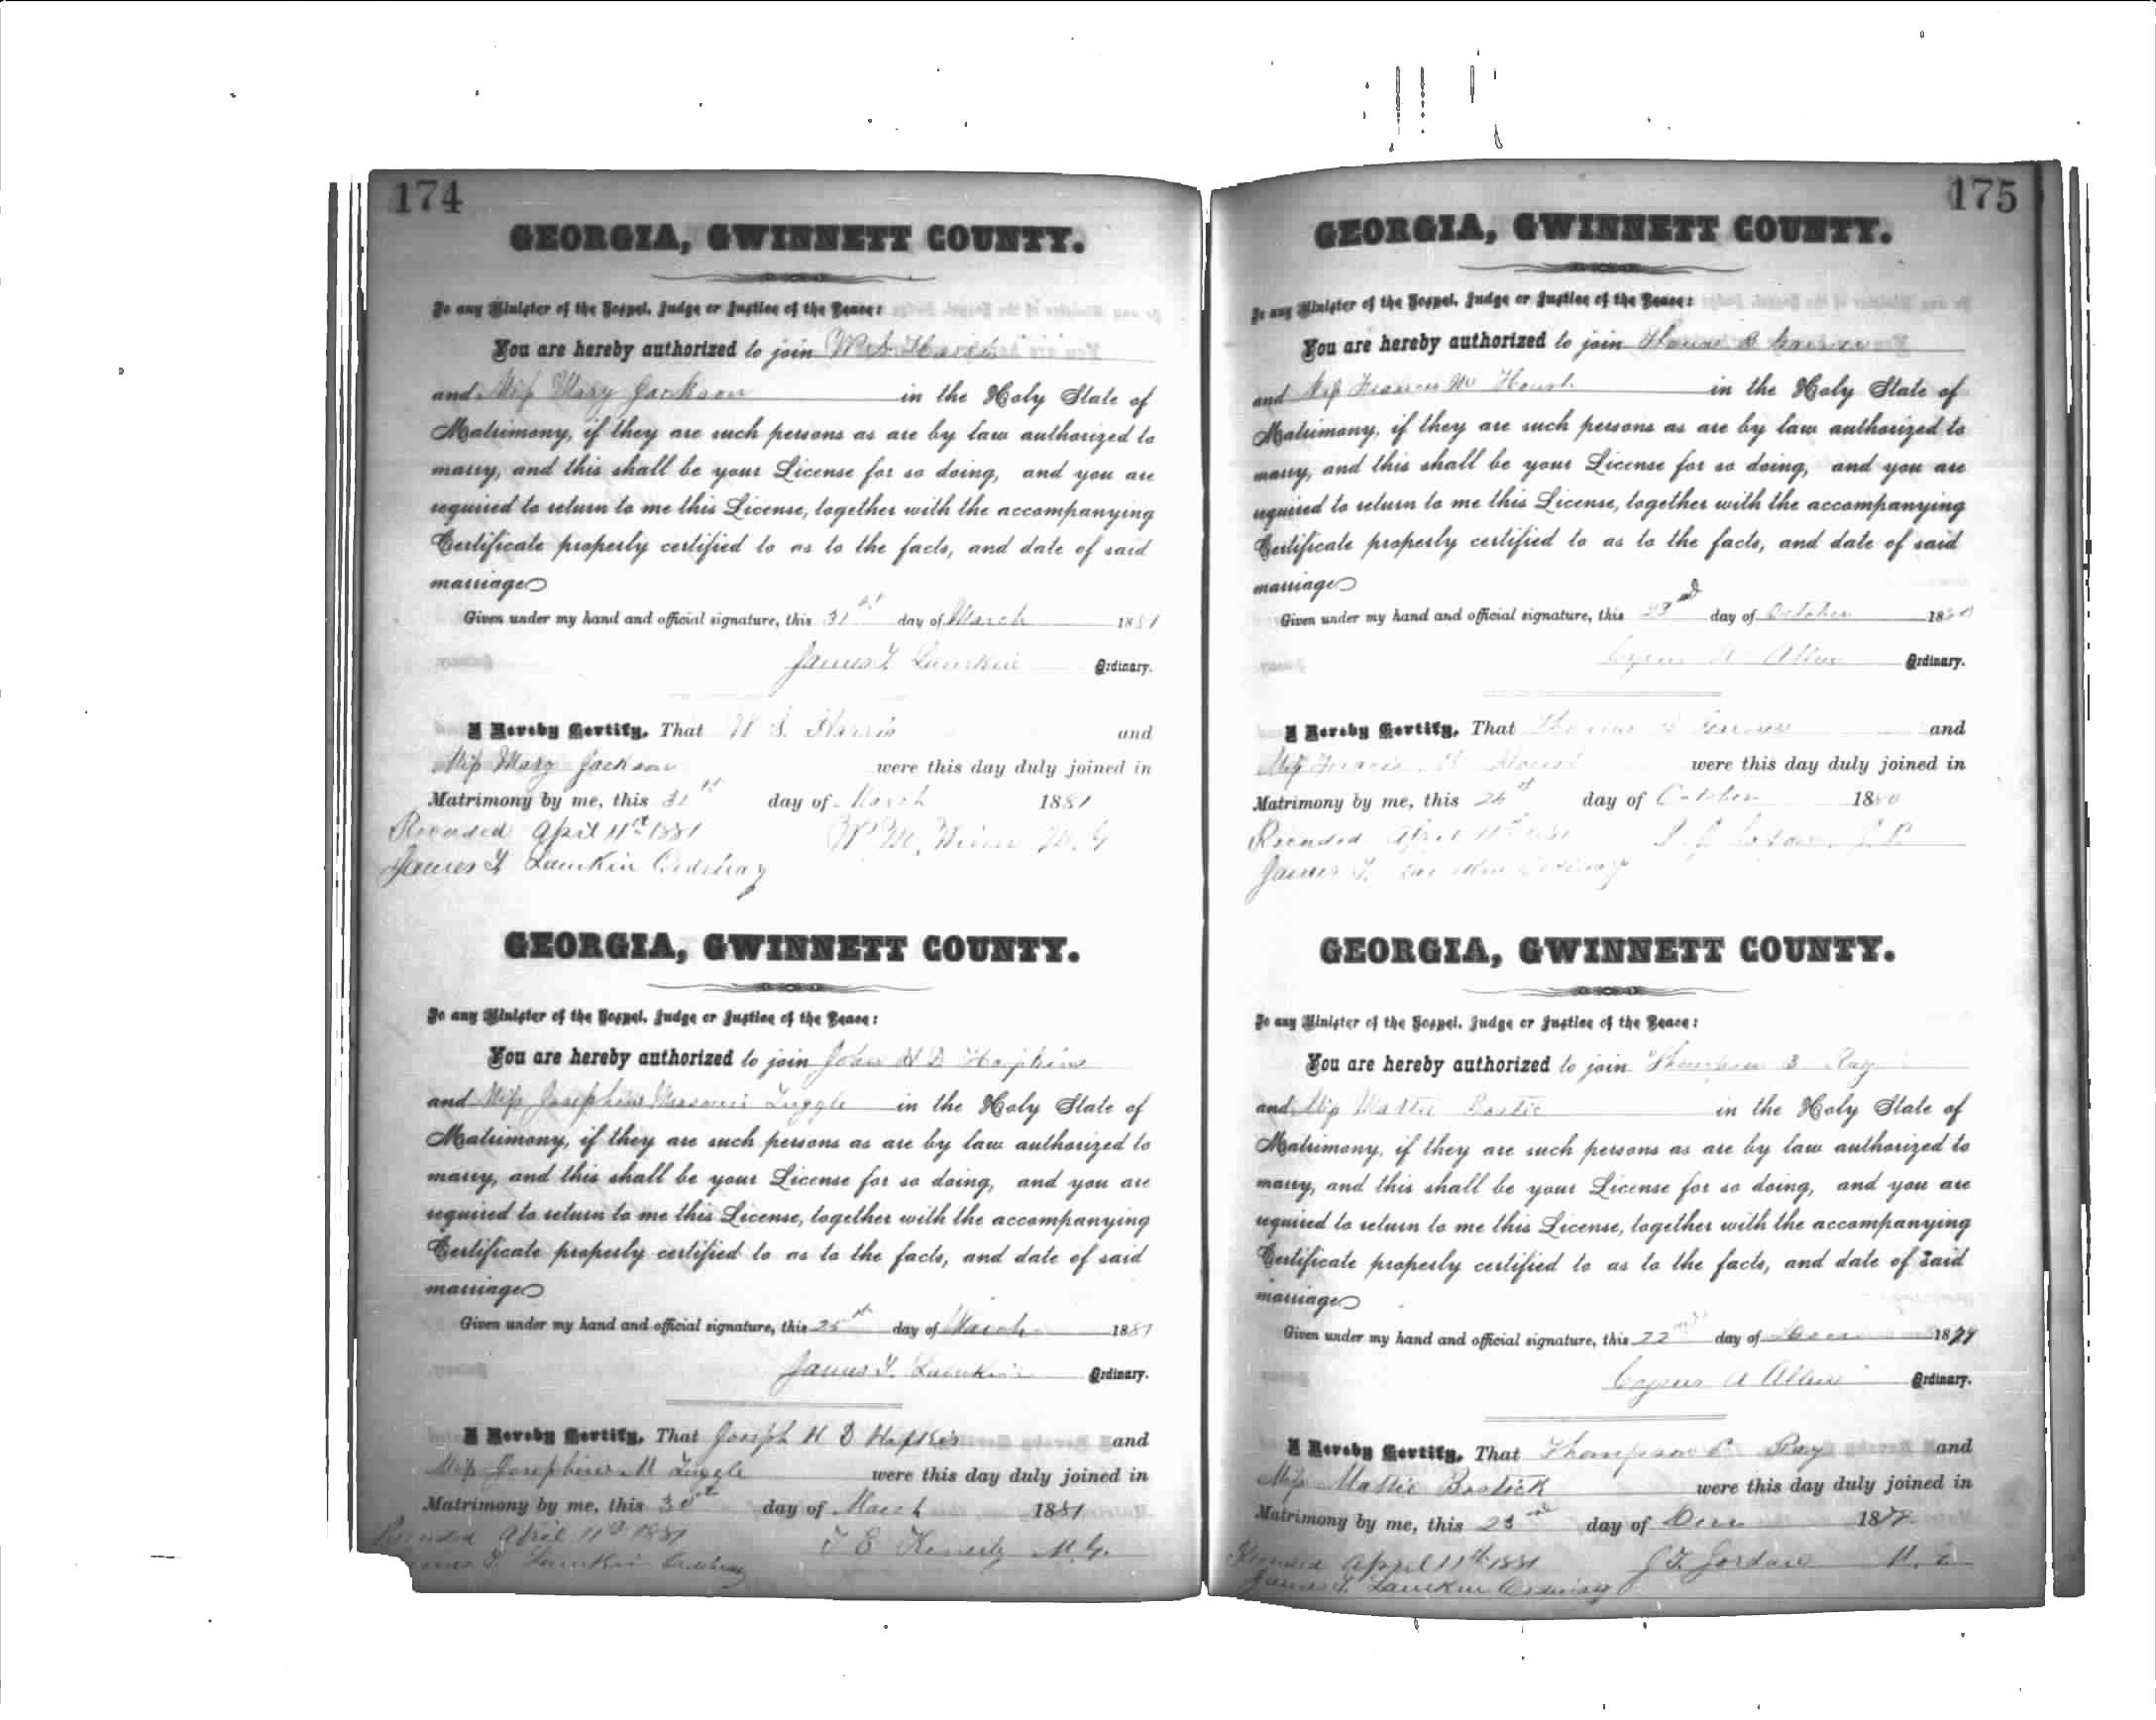 174
GEORGIA, GWINNETT COUNTY.
To any Minister of the Gospel, Judge or Justice of the Peace:
You are hereby authorized to join W S Harris
and Miss Mary Jackson in the Holy State of
Matrimony, if they are such persons as are by law authorized to
marry, and this shall be your License for so doing, and you are
required to return to me this License, together with the accompanying
Certificate properly certified to as to the facts, and date of said
marriage
Given under my hand and official signature, this 31st day of March 1881
James T. Lamkin Ordinary.
I Hereby Certify, That W S. Harris and
Miss Mary Jackson were this day duly joined in
Matrimony by me, this 31st day of March 1881
Recorded April 11th 1881
W. M. Winn M. G
James T. Lamkin Ordinary
GEORGIA, GWINNETT COUNTY.
To any Minister of the Gospel, Judge or Justice of the Peace:
You are hereby authorized to join John H D Hopkins
and Miss Josephine Tuggle in the Holy State of
Matrimony, if they are such persons as are by law authorized to
marry, and this shall be your License for so doing, and you are
required to return to me this License, together with the accompanying
Certificate properly certified to as to the facts, and date of said
marriage
Given under my hand and official signature, this 25th day of March 1881
James T. Lamkin Ordinary.
I Hereby Certify, That Joseph H D Hopkins and
Miss Josephine M Tuggle were this day duly joined in
Matrimony by me, this 30th day of March 1881
Recorded April 11th 1881
T E Kennerly M. G.
James T. Lamkin Ordinary
175
GEORGIA, GWINNETT COUNTY.
To any Minister of the Gospel, Judge or Justice of the Peace:
You are hereby authorized to join Thomas B
and Miss Frances M in the Holy State of
Matrimony, if they are such persons as are by law authorized to
marry, and this shall be your License for so doing, and you are
required to return to me this License, together with the accompanying
Certificate properly certified to as to the facts, and date of said
marriage
Given under my hand and official signature, this 23rd day of October 1880
Cyrus A Allen Ordinary.
I Hereby Certify, That Thomas B and
Miss Frances M were this day duly joined in
Matrimony by me, this day of October 1880
Recorded April 11th 1881
James T. Lamkin Ordinary
GEORGIA, GWINNETT COUNTY.
To any Minister of the Gospel, Judge or Justice of the Peace:
You are hereby authorized to join Thompson B Ray
and Miss Mattie Bostic in the Holy State of
Matrimony, if they are such persons as are by law authorized to
marry, and this shall be your License for so doing, and you are
required to return to me this License, together with the accompanying
Certificate properly certified to as to the facts, and date of said
marriage
Given under my hand and official signature, this 22nd day of 1879
Cyrus A Allen Ordinary.
I Hereby Certify, That Thompson Ray and
Miss Mattie Bostick were this day duly joined in
Matrimony by me, this 23rd day of
Recorded April 11th 1881
J. T. Jordan M. G.
James T. Lamkin Ordinary